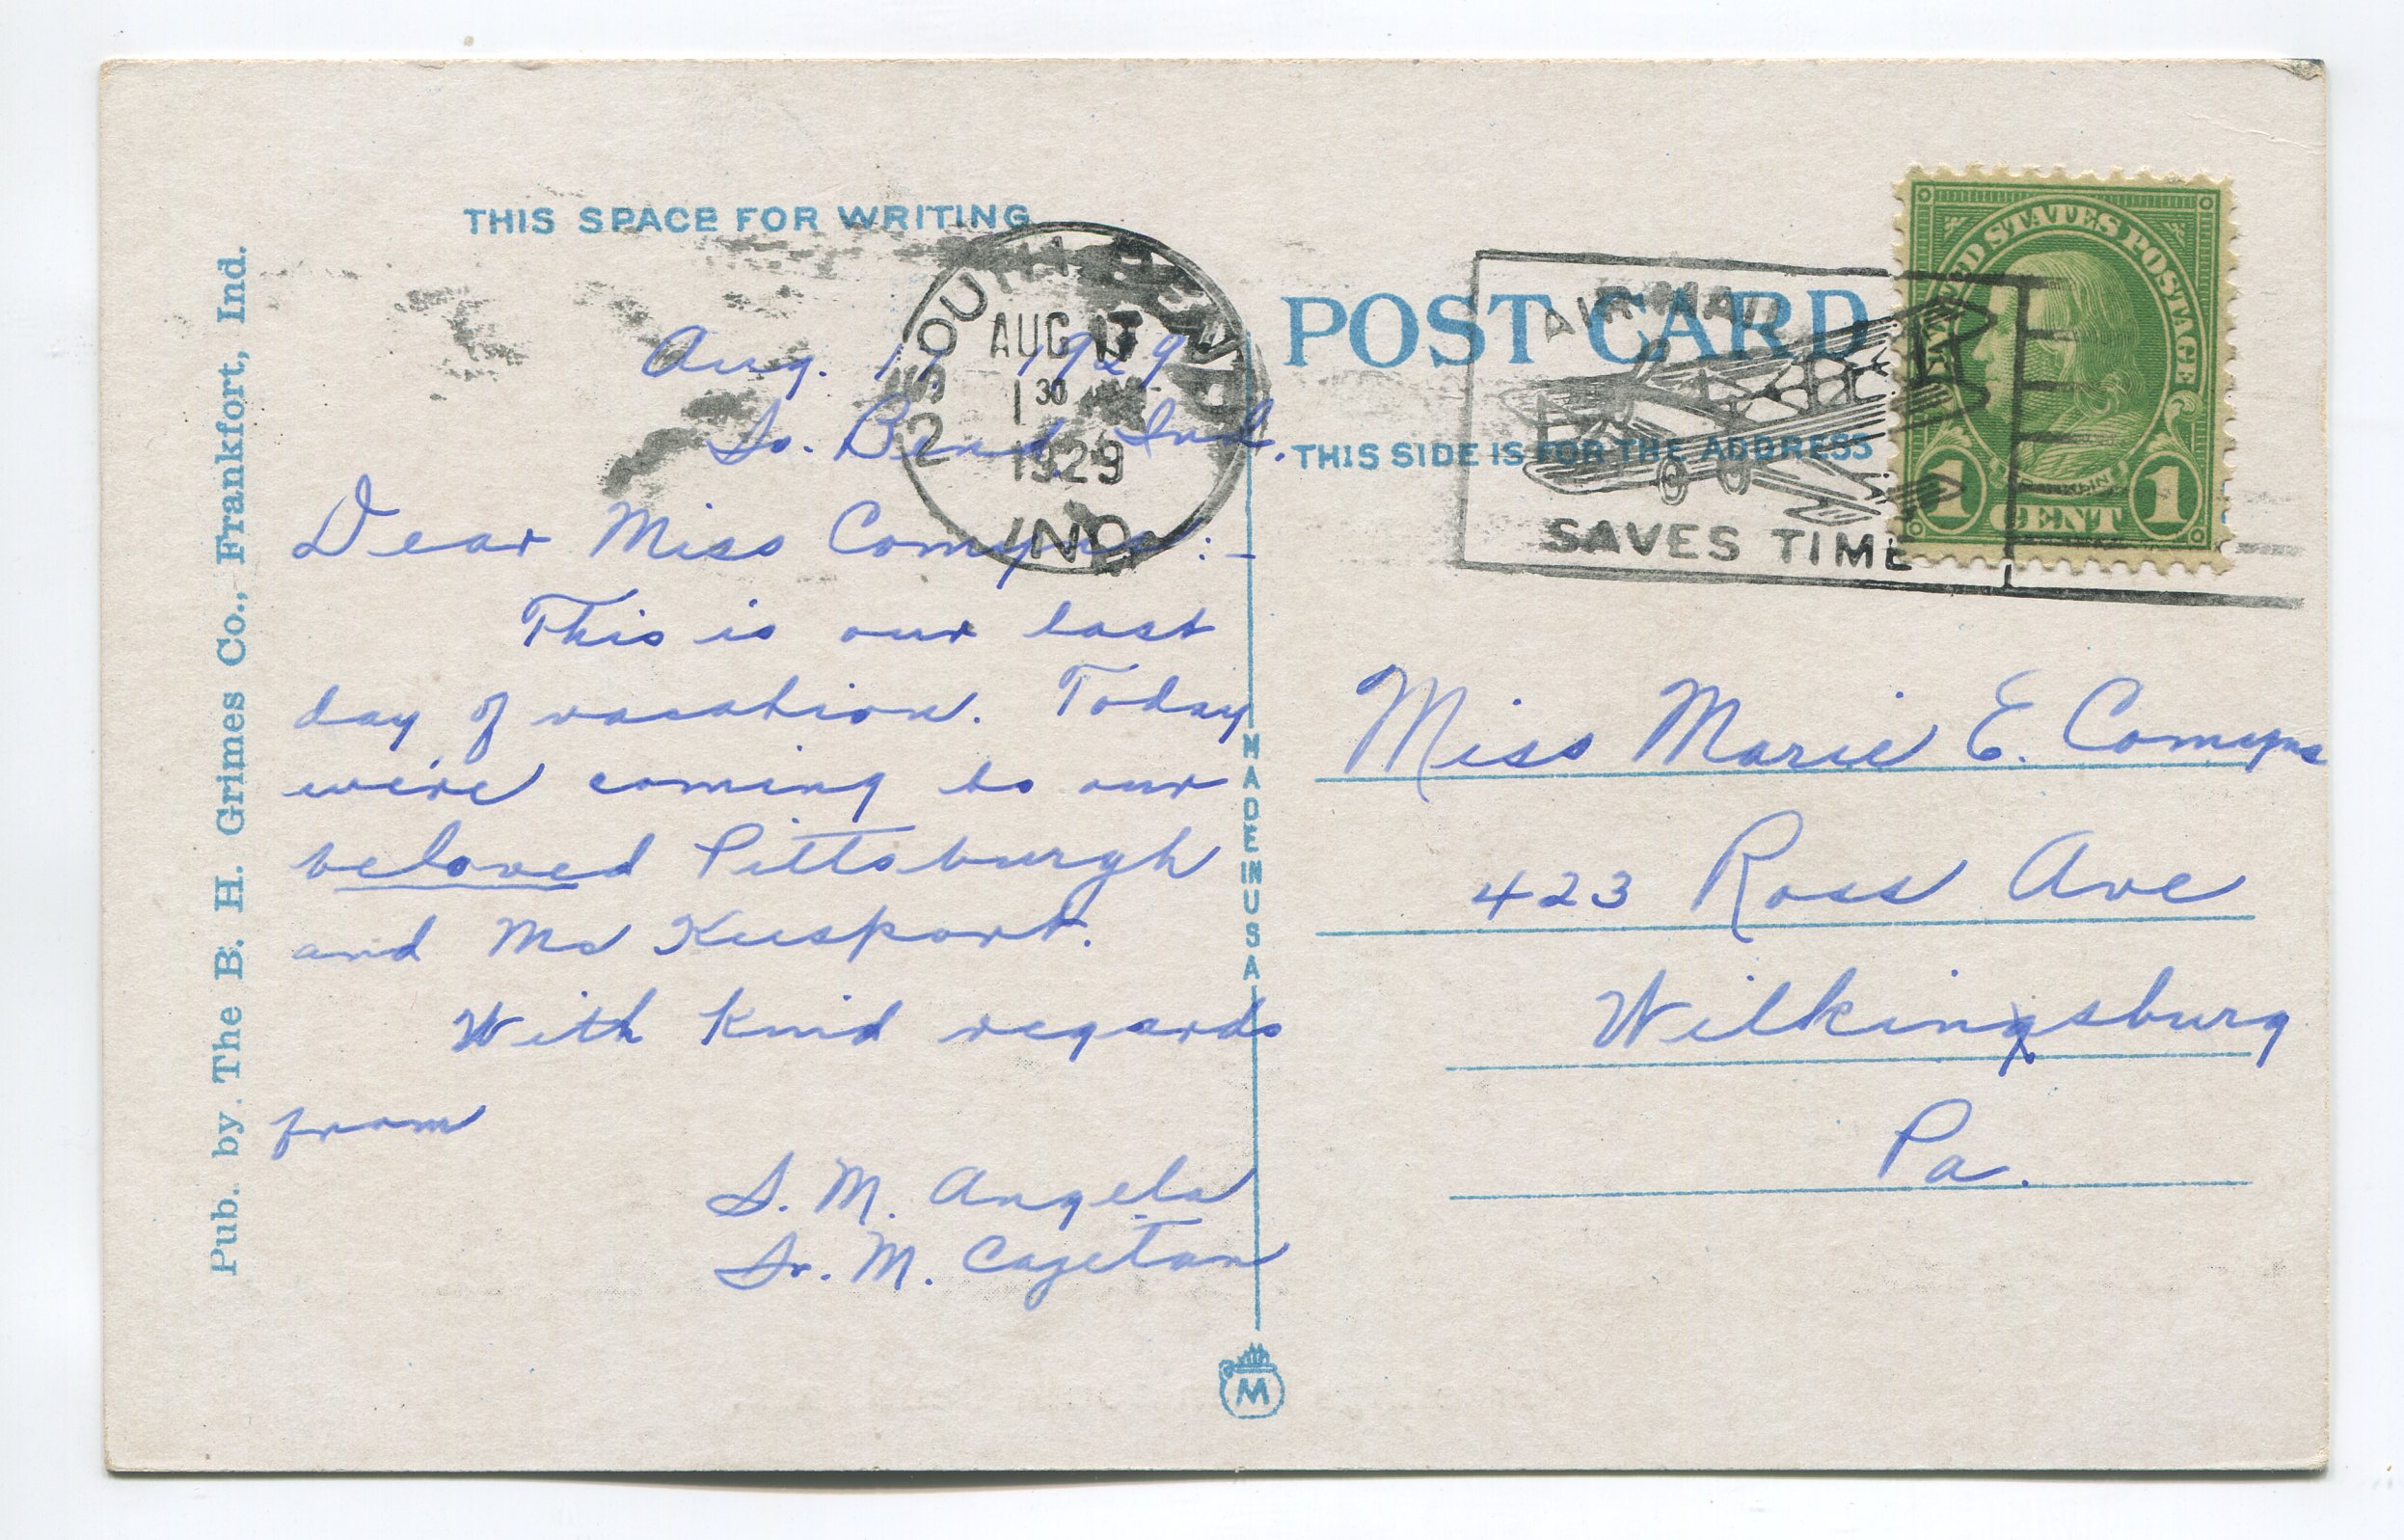 THIS SPACE FOR WRITING
Aug. 17, 1929
So. Bend, Ind.
Dear Miss Comyns:-
This is our last
day of vacation. Today
we're coming to our
beloved Pittsburgh
and Mc Keesport.
With kind regards
from
S. M. Angela
Sr. M. Cajetan
Pub. by. The B. H. Grimes Co., Frankfort, Ind.
MADE IN USA
M
SOUTH BEND
2
AUG 17
1 30
1929
IND.
POST CARD
THIS SIDE IS FOR THE ADDRESS
AIR MAIL
SAVES TIME
UNITED STATES POSTAGE
FRANKLIN
1 CENT 1
Miss Marie E. Comyns
423 Ross Ave
Wilkingsburg
Pa.